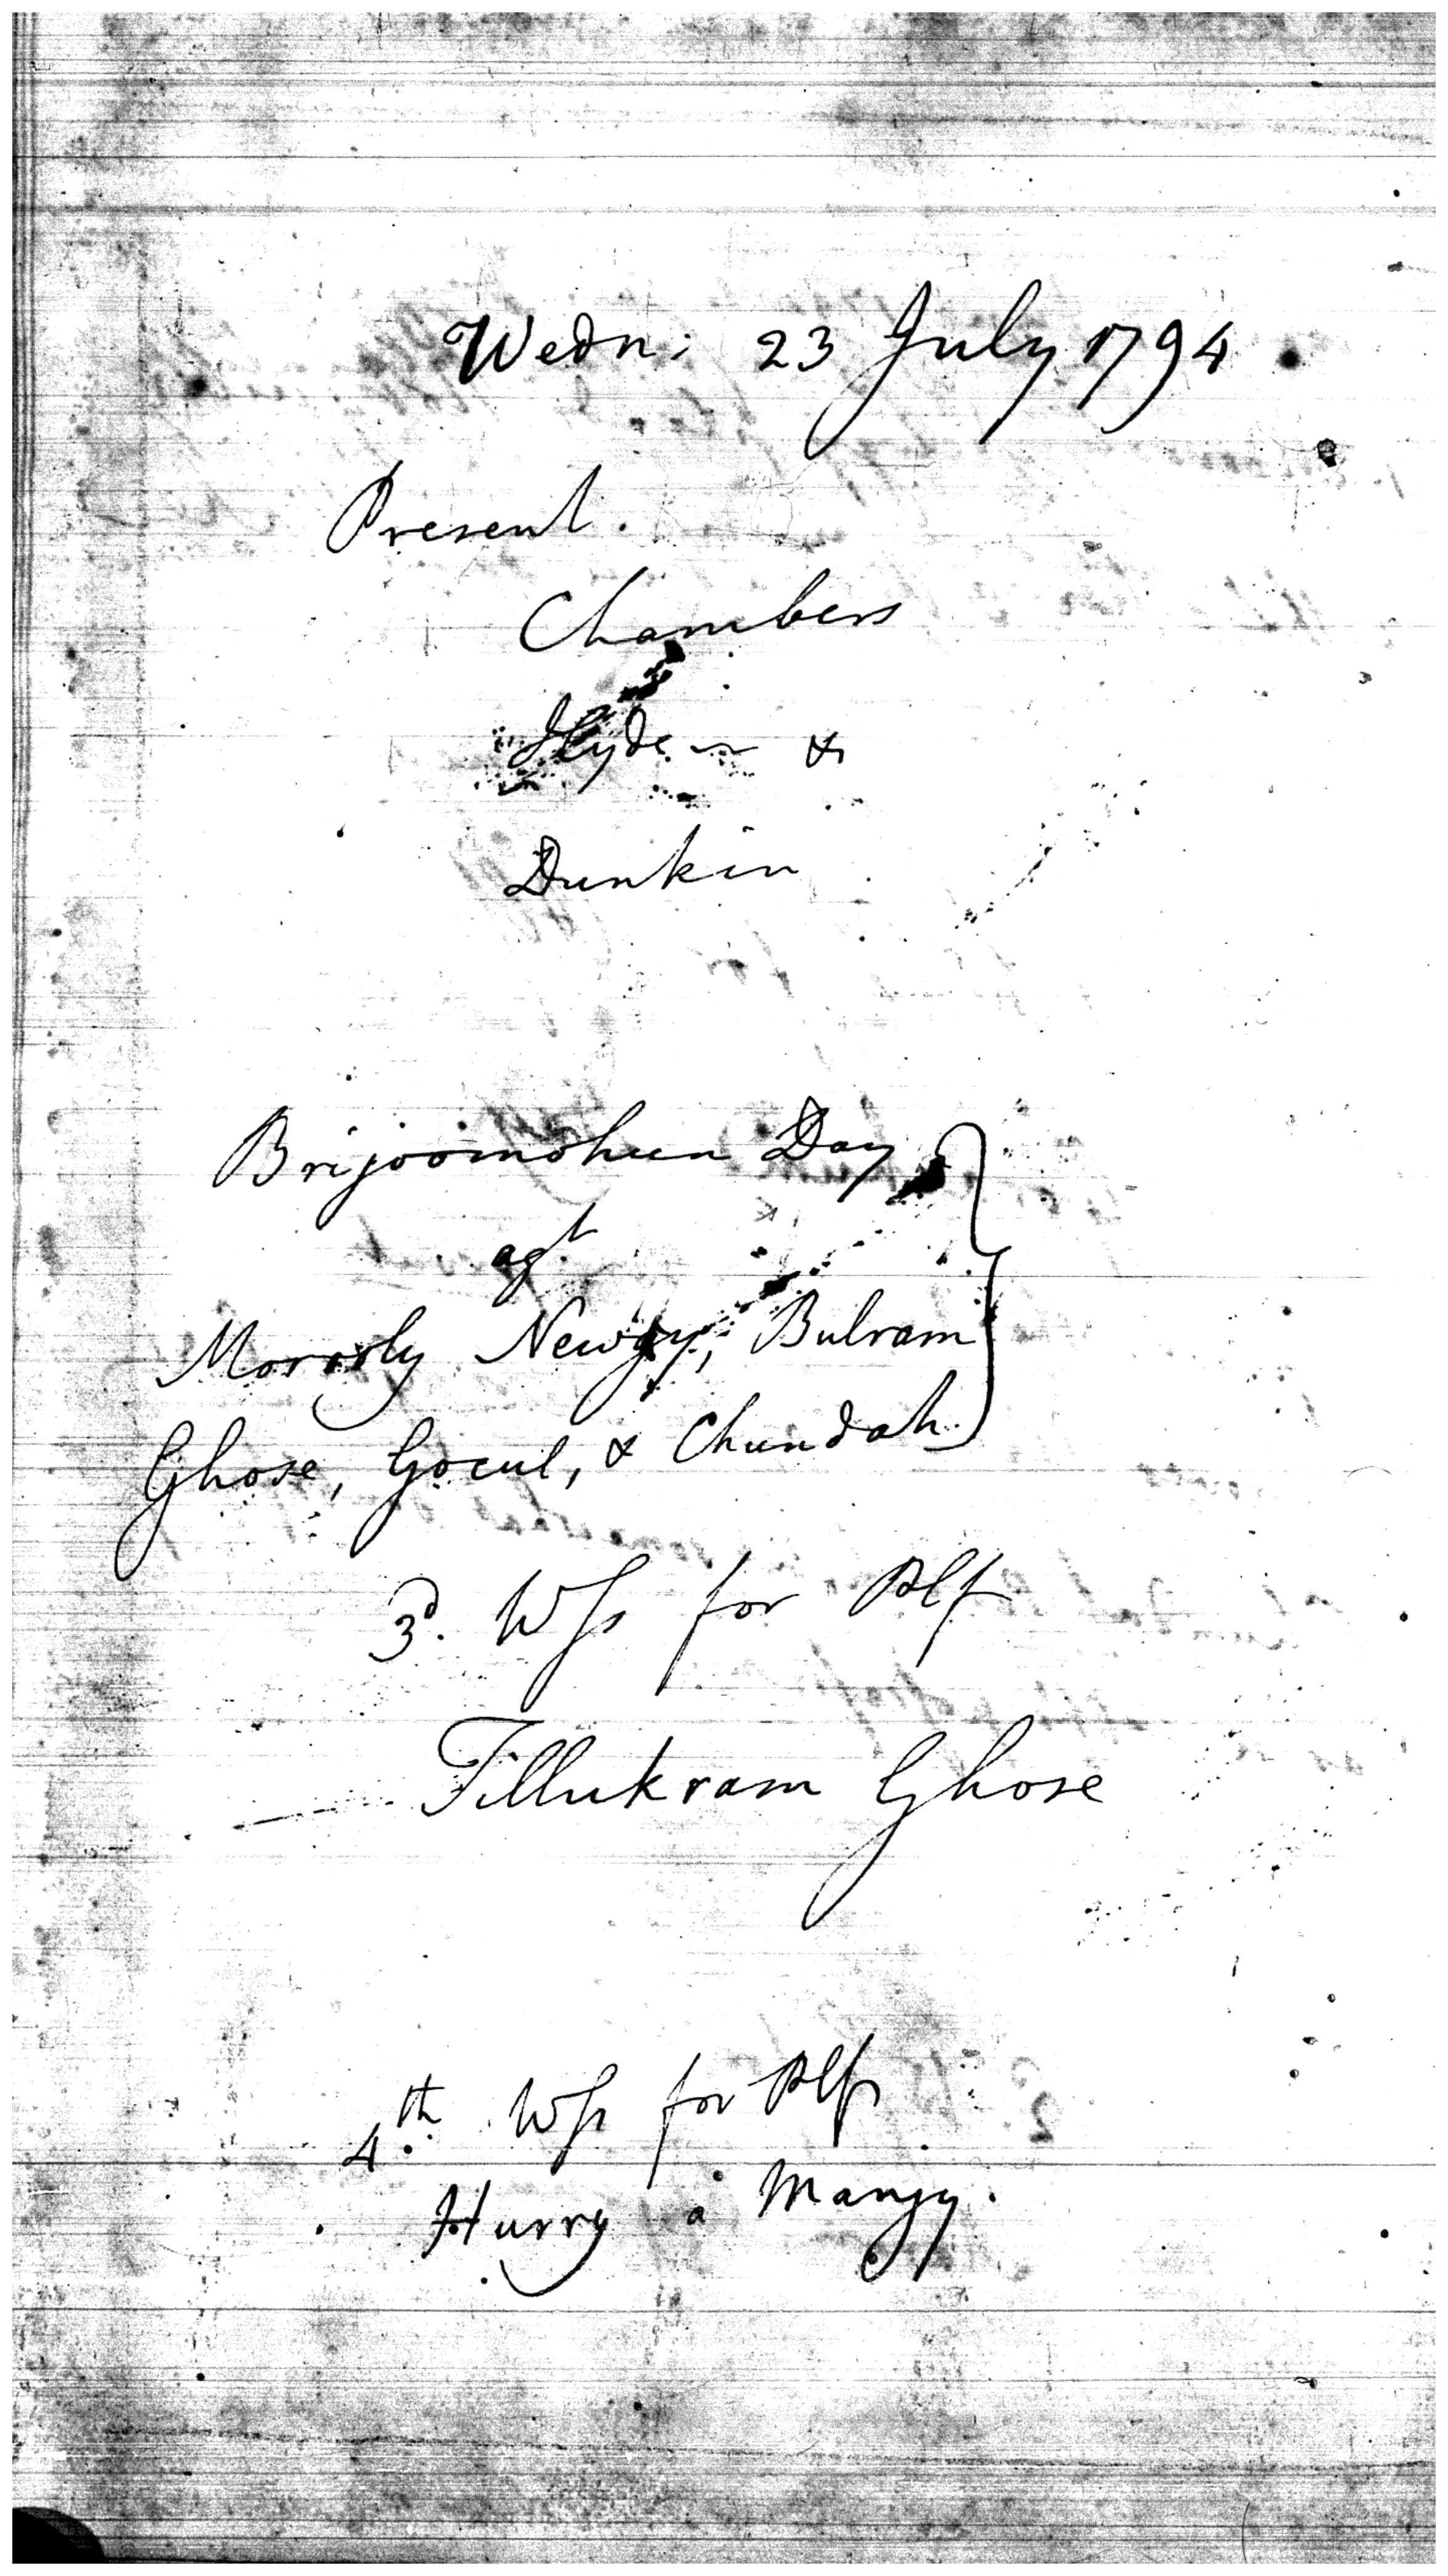 Wedn: 23 July 1794
Present.
Chambers
Hyde &
Dunkin
Brijoomohun Day
agt
Bulram
Ghose, Gocul, & Chundah.
3d. Wss for Plf
Tillukram Ghose
4th Wss for Plf
Hurry a Mangy.